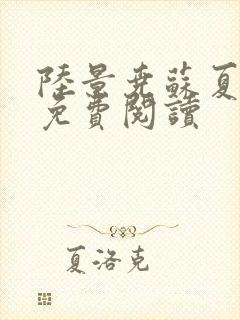 陸景堯蘇夏
免費閱讀
夏洛克